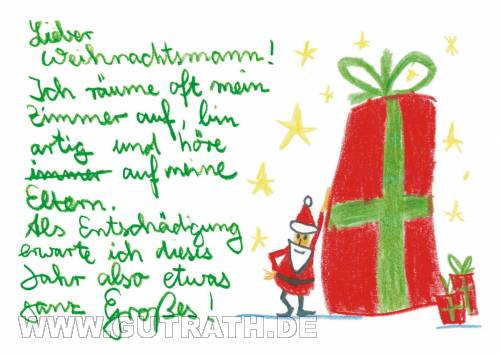 Lieber
Weihnachtsmann!
Ich räume oft mein
Zimmer auf, bin
artig und höre
immer auf meine
Eltern.
Als Entschädigung
erwarte ich dieses
Jahr also etwas
ganz Großes!
WWW.GUTRATH.DE